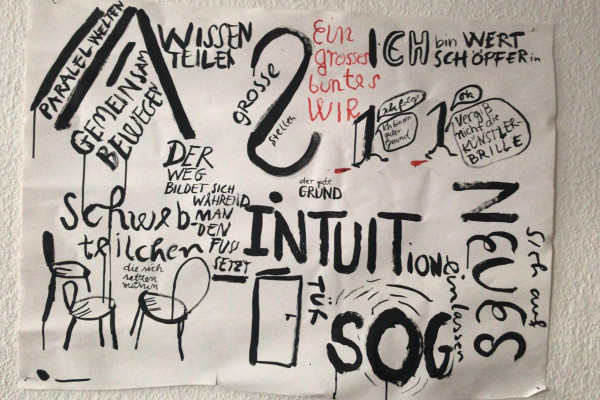 PARALEL WELTEN
GEMEINSAM
BEWEGEN
WISSEN
TEILEN
GROSSE
stellen
Ein
grosses
buntes
WIR
ICH bin WERT
SCHÖPFER in
Ich bin ein
guter
Grund
ok
Vergiß
nicht die
KÜNSTLER-
BRILLE
DER
WEG
BILDET SICH
WÄHREND
MAN
DEN
FUSS
SETZT
der gute
GRUND
Schweb-
teilchen
die sich
setzen
müssen
INTUITION
TÜR
SOG
NEUES
sich auf
einlassen